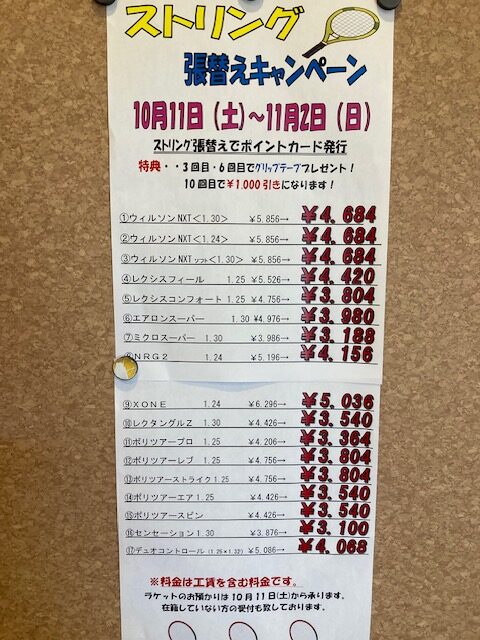 ストリング
張替えキャンペーン
10月11日(土)~11月2日(日)
ストリング張替えでポイントカード発行
特典・・3回目・6回目でグリップテーププレゼント!
10回目で¥1,000引きになります!
①ウィルソンNXT<1.30> ¥5.856→ ¥4,684
②ウィルソンNXT<1.24> ¥5.856→ ¥4,684
③ウィルソンNXTソフト<1.30> ¥5.856→ ¥4,684
④レクシスフィール 1.25 ¥5.526→ ¥4,420
⑤レクシスコンフォート 1.25 ¥4.756→ ¥3,804
⑥エアロンスーパー 1.30 ¥4.976→ ¥3,980
⑦ミクロスーパー 1.30 ¥3.986→ ¥3,188
⑧NRG2 1.24 ¥5.196→ ¥4,156
⑨XONE 1.24 ¥6.296→ ¥5,036
⑩レクタングルZ 1.30 ¥4.426→ ¥3,540
⑪ポリツアープロ 1.25 ¥4.206→ ¥3,364
⑫ポリツアーレブ 1.25 ¥4.756→ ¥3,804
⑬ポリツアーストライク 1.25 ¥4.756→ ¥3,804
⑭ポリツアーエア 1.25 ¥4.426→ ¥3,540
⑮ポリツアースピン ¥4.426→ ¥3,540
⑯センセーション 1.30 ¥3.876→ ¥3,100
⑰デュオコントロール(1.25×1.32) ¥5.086→ ¥4,068
※料金は工賃を含む料金です。
ラケットのお預かりは10月11日(土)から承ります。
在籍していない方の受付も致しております。